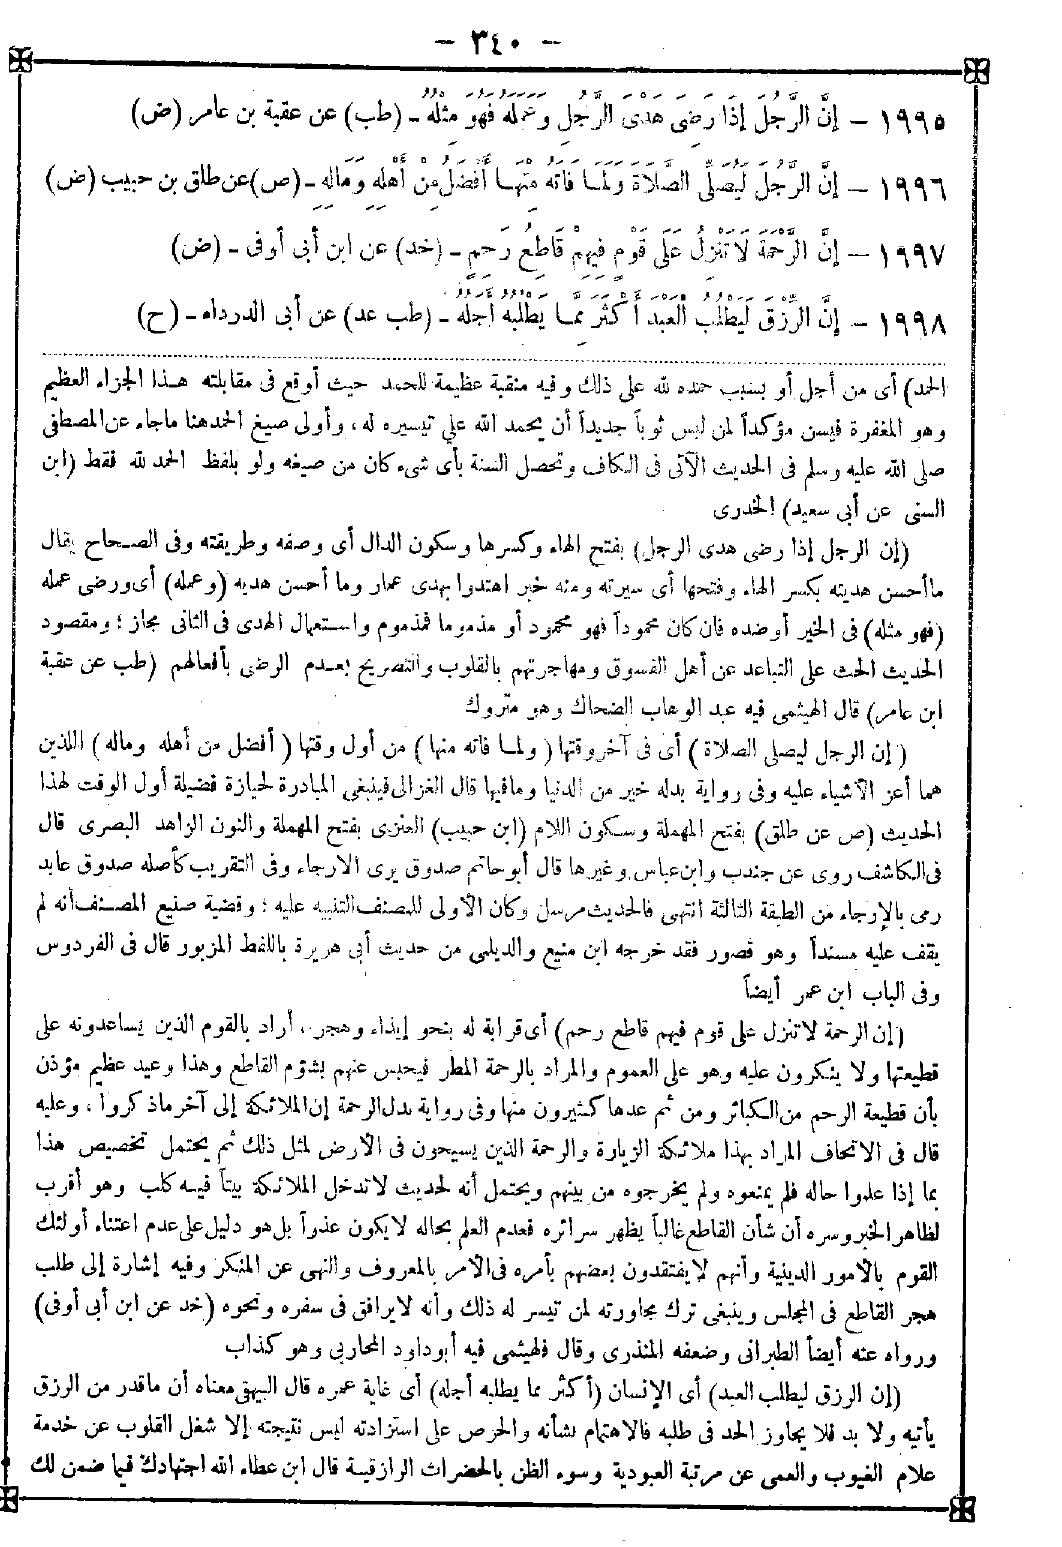 - ٣٤٠ -
١٩٩٥ - إِنَّ الرَّجُلَ إِذَا رَضِىَ هَدْىَ الرَّجُلِ وَعَمَلَهُ فَهُوَ مِثْلُهُ - (طب) عن عقبة بن عامر (ض)
١٩٩٦ - إِنَّ الرَّجُلَ لَيُصَلِّى الصَّلَاةَ وَلَمَا فَاتَهُ مِنْهَا أَفْضَلُ مِنْ أَهْلِهِ وَمَالِهِ - (ص) عن طلق بن حبيب (ض)
١٩٩٧ - إِنَّ الرَّحْمَةَ لَا تَنْزِلُ عَلَى قَوْمٍ فِيهِمْ قَاطِعُ رَحِمٍ - (خد) عن ابن أبى أوفى - (ض)
١٩٩٨ - إِنَّ الرِّزْقَ لَيَطْلُبُ الْعَبْدَ أَكْثَرَ مِمَّا يَطْلُبُهُ أَجَلُهُ - (طب عد) عن أبى الدرداء - (ح)
الحمد) أى من أجل أو بسبب حمده لله على ذلك وفيه منقبة عظيمة للحمد حيث أوقع فى مقابلته هذا الجزاء العظيم
وهو المغفرة فيسن مؤكداً لمن لبس ثوباً جديداً أن يحمد الله على تيسيره له ، وأولى صيغ الحمد هنا ماجاء عن المصطفى
صلى الله عليه وسلم فى الحديث الآتى فى الكاف وتحصل السنة بأى شىء كان من صيغه ولو بلفظ الحمد لله فقط (ابن
السنى عن أبى سعيد) الخدرى
(إن الرجل إذا رضى هدى الرجل) بفتح الهاء وكسرها وسكون الدال أى وصفه وطريقته وفى الصحاح يقال
ماأحسن هديته بكسر الهاء وفتحها أى سيرته ومنه خبر اهتدوا بهدى عمار وما أحسن هديه (وعمله) أى ورضى عمله
(فهو مثله) فى الخير أوضده فان كان محموداً فهو محمود أو مذموما فمذموم واستعمال الهدى فى الثانى مجاز ؛ ومقصود
الحديث الحث على التباعد عن أهل الفسوق ومهاجرتهم بالقلوب والتصريح بعدم الرضى بأفعالهم (طب عن عقبة
ابن عامر) قال الهيثمى فيه عبد الوهاب الضحاك وهو متروك
( إن الرجل ليصلى الصلاة ) أى فى آخر وقتها ( ولما فاته منها ) من أول وقتها ( أفضل من أهله وماله ) اللذين
هما أعز الأشياء عليه وفى رواية بدله خير من الدنيا ومافيها قال الغزالى فينبغى المبادرة لحيازة فضيلة أول الوقت لهذا
الحديث (ص عن طلق) بفتح المهملة وسكون اللام (ابن حبيب) العنزى بفتح المهملة والنون الزاهد البصرى قال
فى الكاشف روى عن جندب وابن عباس وغيرها قال أبو حاتم صدوق يرى الارجاء وفى التقريب كأصله صدوق عابد
رمى بالإرجاء من الطبقة الثالثة انتهى فالحديث مرسل وكان الأولى للمصنف التنبيه عليه ؛ وقضية صنيع المصنف أنه لم
يقف عليه مسنداً وهو قصور فقد خرجه ابن منيع والديلمى من حديث أبى هريرة باللفظ المزبور قال فى الفردوس
وفى الباب ابن عمر أيضاً
(إن الرحمة لا تنزل على قوم فيهم قاطع رحم) أى قرابة له بنحو إيذاء وهجر ، أراد بالقوم الذين يساعدونه على
قطيعتها ولا ينكرون عليه وهو على العموم والمراد بالرحمة المطر فيحبس عنهم بشؤم القاطع وهذا وعيد عظيم مؤذن
بأن قطيعة الرحم من الكبائر ومن ثم عدها كثيرون منها وفى رواية بدل الرحمة إن الملائكة إلى آخر ماذكروا ، وعليه
قال فى الاتحاف المراد بهذا ملائكة الزيارة والرحمة الذين يسيحون فى الأرض لمثل ذلك ثم يحتمل تخصيص هذا
بما إذا علموا حاله فلم يمنعوه ولم يخرجوه من بينهم ويحتمل أنه لحديث لا تدخل الملائكة بيتاً فيه كلب وهو أقرب
لظاهر الخبر وسره أن شأن القاطع غالباً يظهر سرائره فعدم العلم بحاله لا يكون عذراً بل هو دليل على عدم اعتناء أولئك
القوم بالأمور الدينية وأنهم لا يفتقدون بعضهم بأمره فى الأمر بالمعروف والنهى عن المنكر وفيه إشارة إلى طلب
هجر القاطع فى المجلس وينبغى ترك مجاورته لمن تيسر له ذلك وأنه لا يرافق فى سفره ونحوه (خد عن ابن أبى أوفى)
ورواه عنه أيضاً الطبرانى وضعفه المنذرى وقال فلهيثمى فيه أبو داود المحاربى وهو كذاب
(إن الرزق ليطلب العبد) أى الإنسان (أكثر مما يطلبه أجله) أى غاية عمره قال البيهقى معناه أن ماقدر من الرزق
يأتيه ولا بد فلا يجاوز الحد فى طلبه فالاهتمام بشأنه والحرص على استزادته ليس نتيجته إلا شغل القلوب عن خدمة
علام الغيوب والعمى عن مرتبة العبودية وسوء الظن بالحضرات الرازقية قال ابن عطاء الله اجتهادك فيما ضمن لك